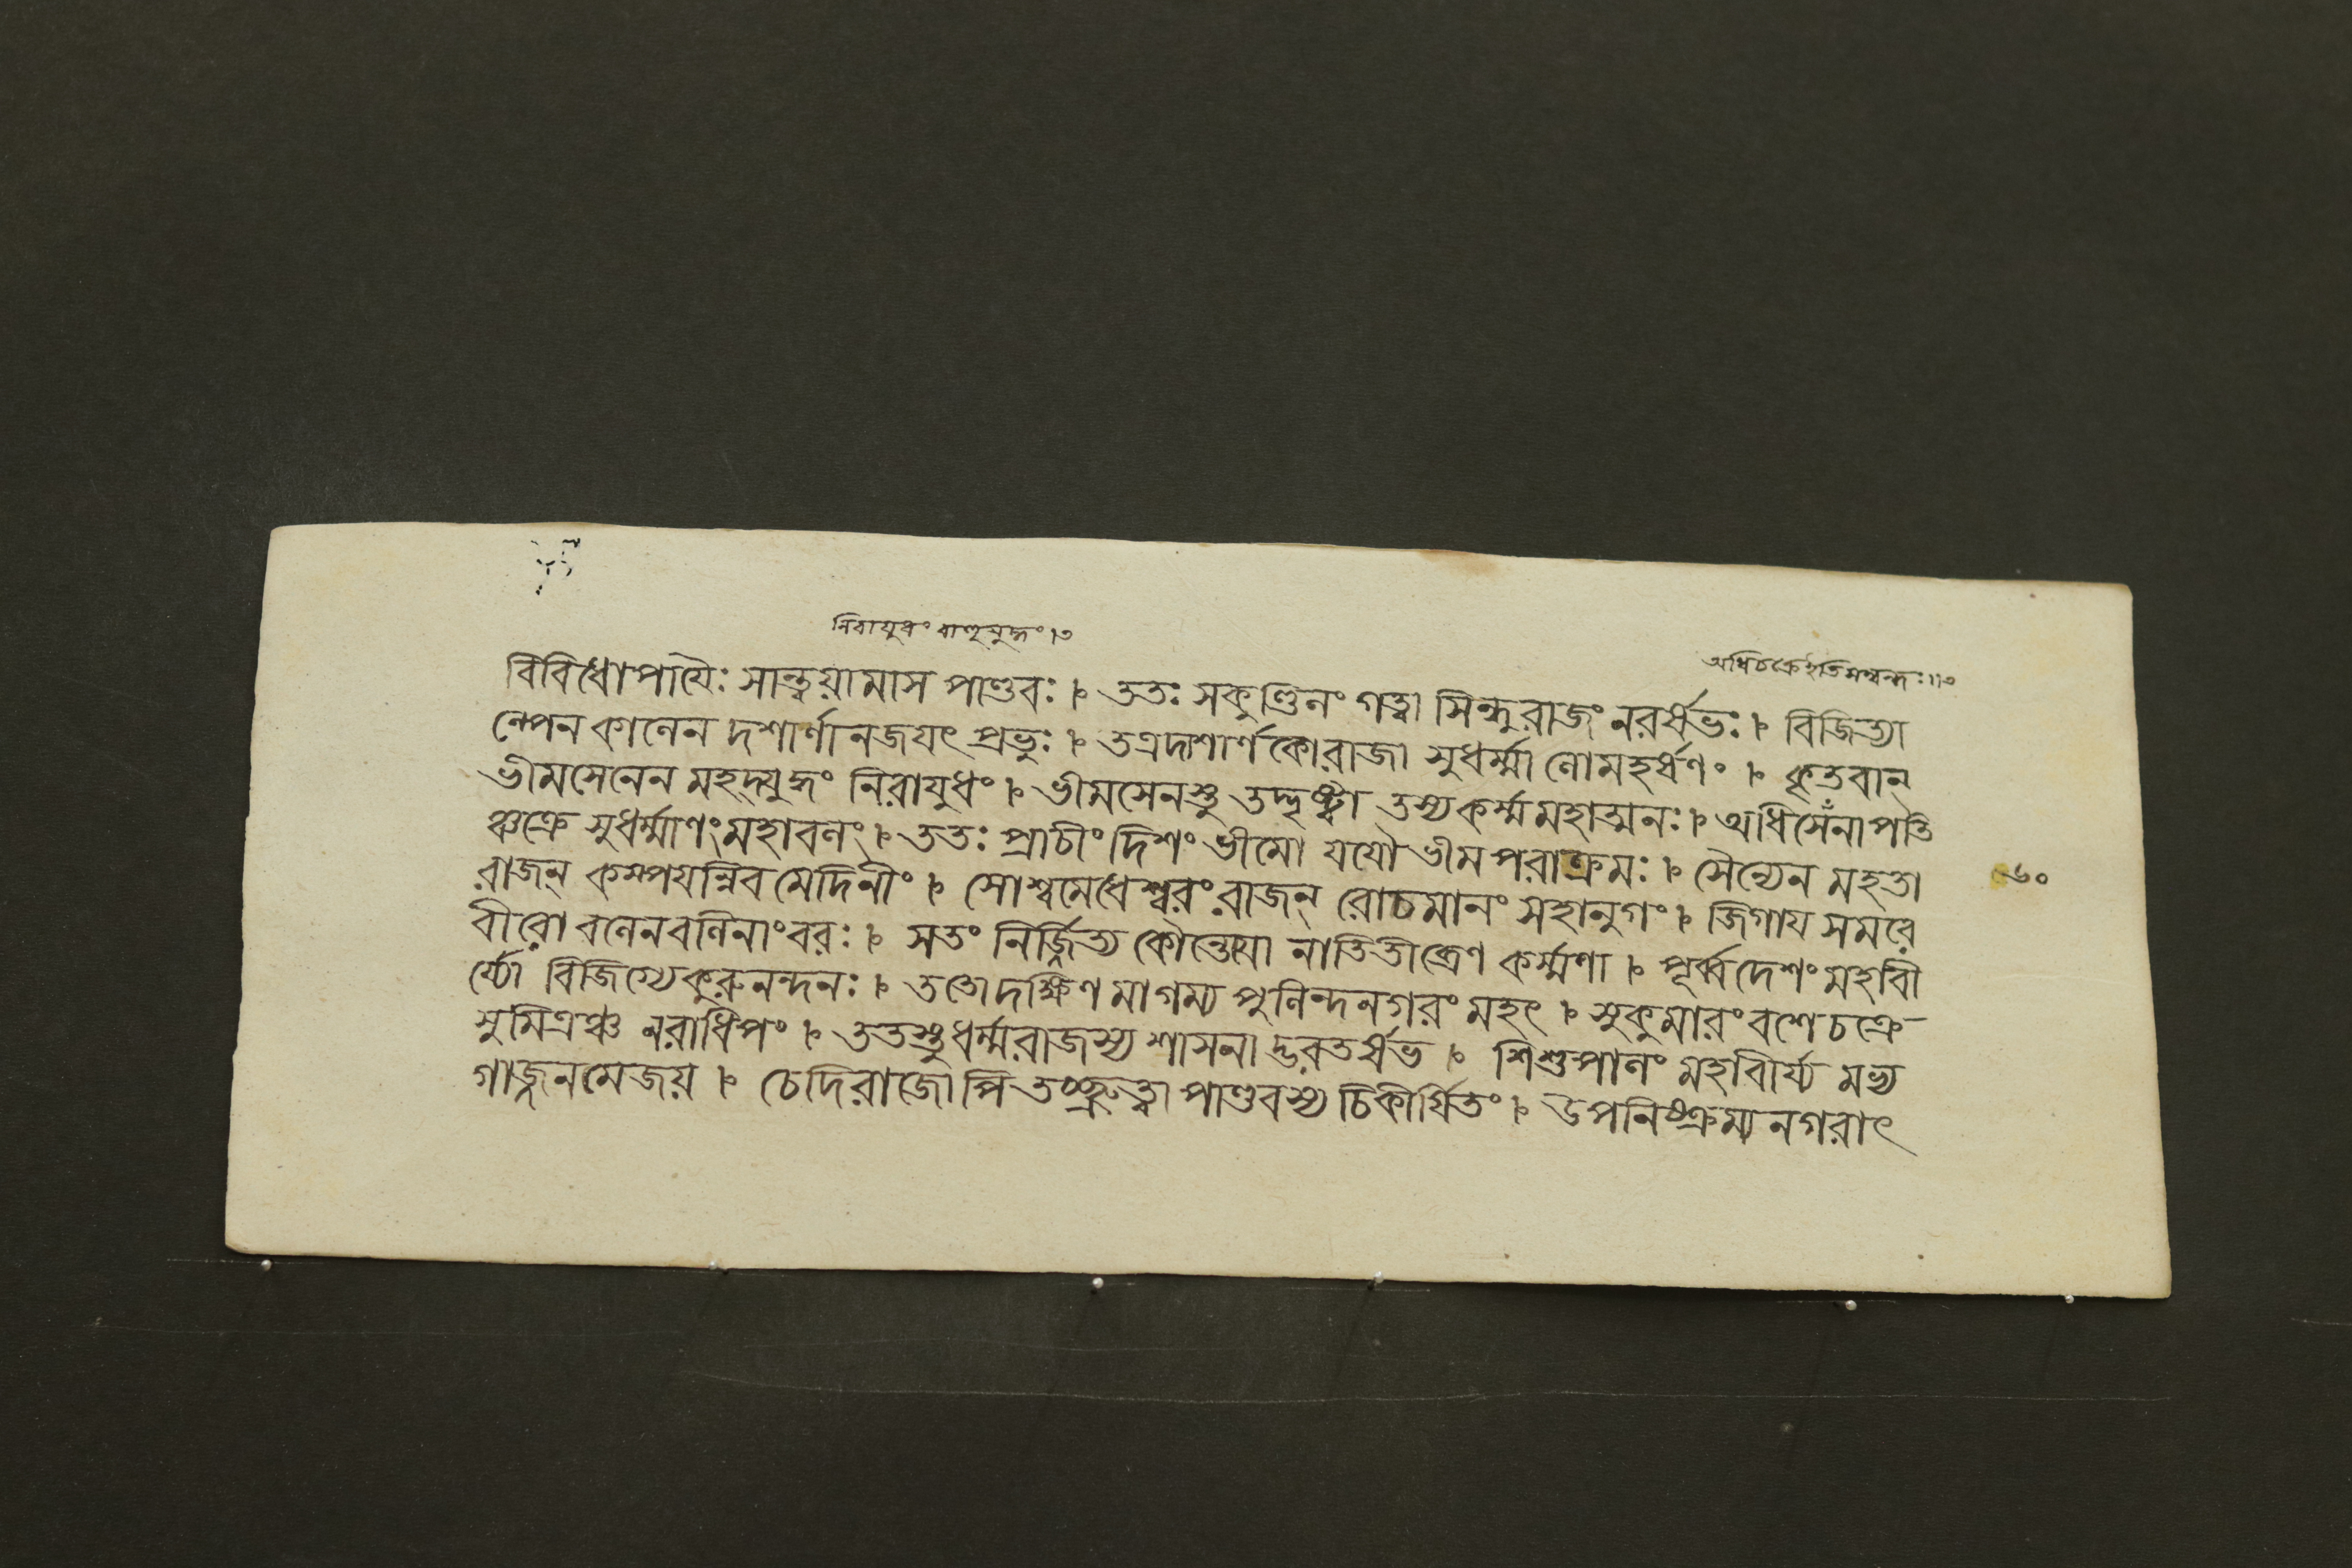 নিরাযুধং বাহুযুদ্ধং।৩
অধিচক্রেইতিসম্বন্ধঃ॥৩
বিবিধোপাযৈঃ সান্ত্বয়ামাস পাণ্ডবঃ । ততঃ সকুণ্ডিনং গত্বা সিন্ধুরাজং নরর্ষভঃ । বিজিত্যা
ল্পেন কালেন দশার্ণানজযৎ প্রভুঃ । তত্রদাশার্ণকোরাজা সুধর্ম্মা লোমহর্ষণং । কৃতবান্
ভীমসেনেন মহদ্যুদ্ধং নিরাযুধং । ভীমসেনস্তু তদ্দৃষ্ট্বা তস্যকর্ম্মমহাত্মনঃ । অধিসেঁনাপতি
ঞ্চক্রে সুধর্ম্মাণংমহাবলং । ততঃ প্রাচীং দিশং ভীমো যযৌ ভীমপরাক্রমঃ । সৈন্যেন মহতা
রাজন্ কম্পযন্নিব মেদিনীং । সোশ্বমেধেশ্বরং রাজন্ রোচমানং সহানুগং । জিগায সমরে
বীরো বলেনবলিনাংবরঃ । সতং নির্জ্জিত্য কৌন্তেযো নাতিতীব্রেণ কর্ম্মণা । পূর্ব্বদেশং মহাবী
র্য্যো বিজিগ্যেকুরুনন্দনঃ । ততোদক্ষিণমাগম্য পুলিন্দনগরং মহৎ । সুকুমারং বশেচক্রে
সুমিত্রঞ্চ নরাধিপং । ততস্তুধর্ম্মরাজস্য শাসনাদ্ভরতর্ষভ । শিশুপালং মহাবীর্য্য মভ্য
গাজ্জনমেজয় । চেদিরাজোপি তচ্ছ্রুত্বা পাণ্ডবস্য চিকীর্ষিতং । উপনিষ্ক্রম্য নগরাৎ